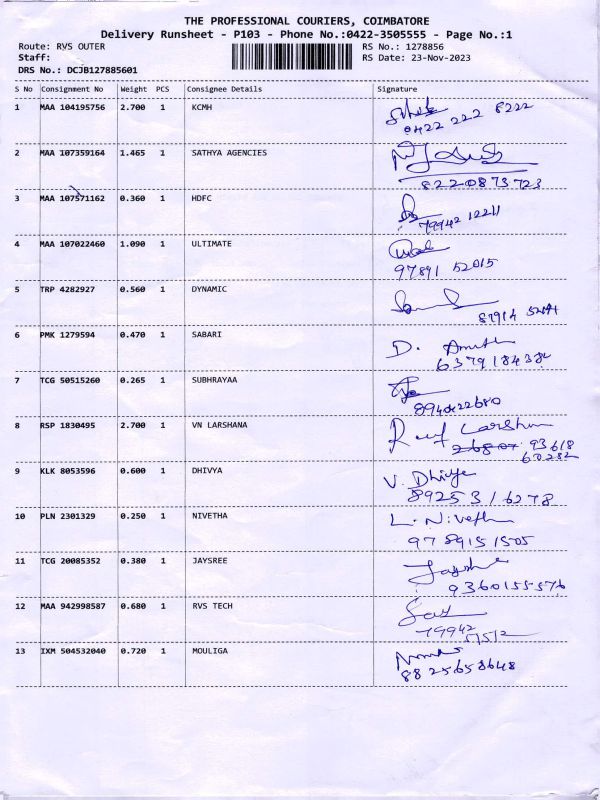 THE PROFESSIONAL COURIERS, COIMBATORE
Delivery Runsheet - P103 - Phone No.:0422-3505555 - Page No.:1
Route: RVS OUTER RS No.: 1278856
Staff: RS Date: 23-Nov-2023
DRS No.: DCJB127885601
S No Consignment No Weight PCS Consignee Details Signature
1 MAA 104195756 2.700 1 KCMH
0422 222 8222
2 MAA 107359164 1.465 1 SATHYA AGENCIES
8220873723
3 MAA 107571162 0.360 1 HDFC
79942 12211
4 MAA 107022460 1.090 1 ULTIMATE
97891 52015
5 TRP 4282927 0.560 1 DYNAMIC
6 PMK 1279594 0.470 1 SABARI
D.
6379184384
7 TCG 50515260 0.265 1 SUBHRAYAA
8940422680
8 RSP 1830495 2.700 1 VN LARSHANA
26807 93618
60282
9 KLK 8053596 0.600 1 DHIVYA
V. Dhivya
89253 16278
10 PLN 2301329 0.250 1 NIVETHA
L. Nivetha
9789151505
11 TCG 20085352 0.380 1 JAYSREE
9360155576
12 MAA 942998587 0.680 1 RVS TECH
79942
51512
13 IXM 504532040 0.720 1 MOULIGA
8825658648